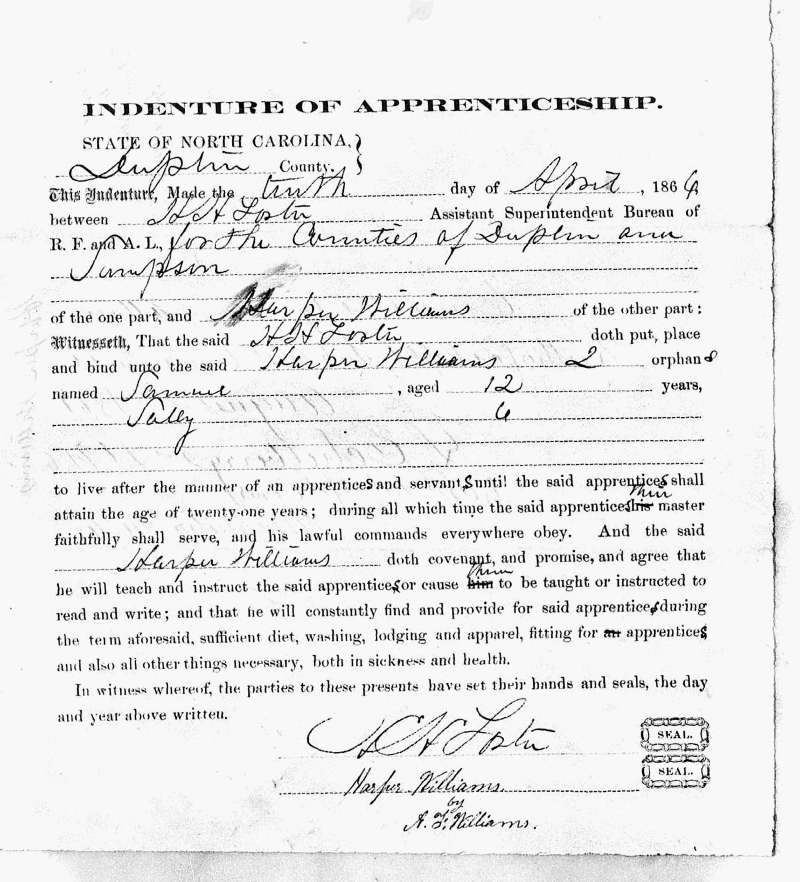 INDENTURE OF APPRENTICESHIP.
STATE OF NORTH CAROLINA,
Duplin County.
This Indenture, Made the tenth day of April, 1866
between H H Foster Assistant Superintendent Bureau of
R. F. and A. L., for the Counties of Duplin and
Sampson
of the one part, and Harper Williams of the other part:
Witnesseth, That the said H H Foster doth put, place
and bind unto the said Harper Williams 2 orphans
named Samuel, aged 12 years,
Sally 6
to live after the manner of an apprentices and servants, until the said apprentices shall
attain the age of twenty-one years; during all which time the said apprentices his their master
faithfully shall serve, and his lawful commands everywhere obey. And the said
Harper Williams doth covenant, and promise, and agree that
he will teach and instruct the said apprentices, or cause him them to be taught or instructed to
read and write; and that he will constantly find and provide for said apprentices during
the term aforesaid, sufficient diet, washing, lodging and apparel, fitting for an apprentices
and also all other things necessary, both in sickness and health.
In witness whereof, the parties to these presents have set their hands and seals, the day
and year above written.
H H Foster SEAL.
Harper Williams. SEAL.
by
A. F. Williams.